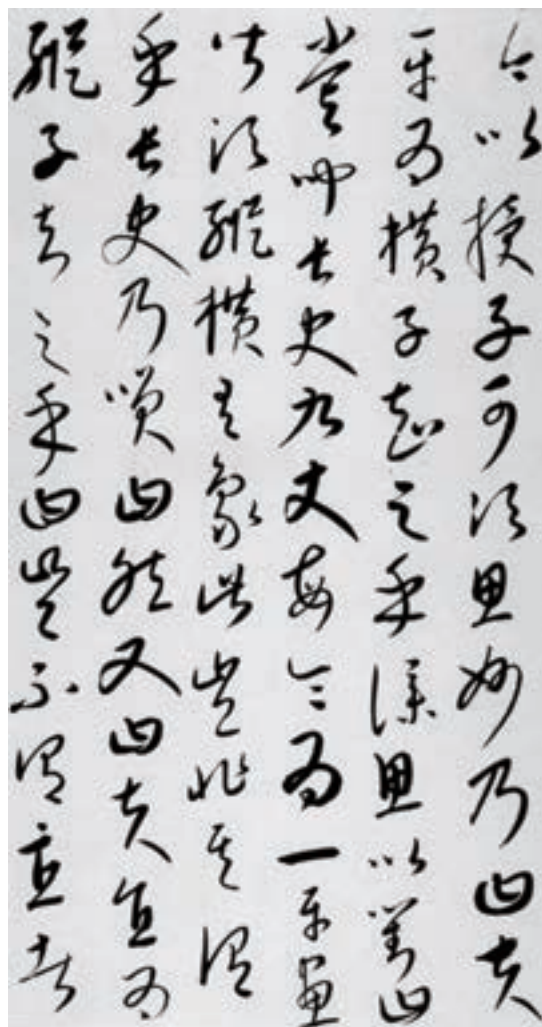 今以授子可須思妙乃曰夫
平為橫子知之乎僕思以對曰
嘗聞長史九丈每令為一平畫
皆須縱橫有象此豈非其謂
乎長史乃笑曰然又曰夫直為
縱子知之乎曰豈不謂直者